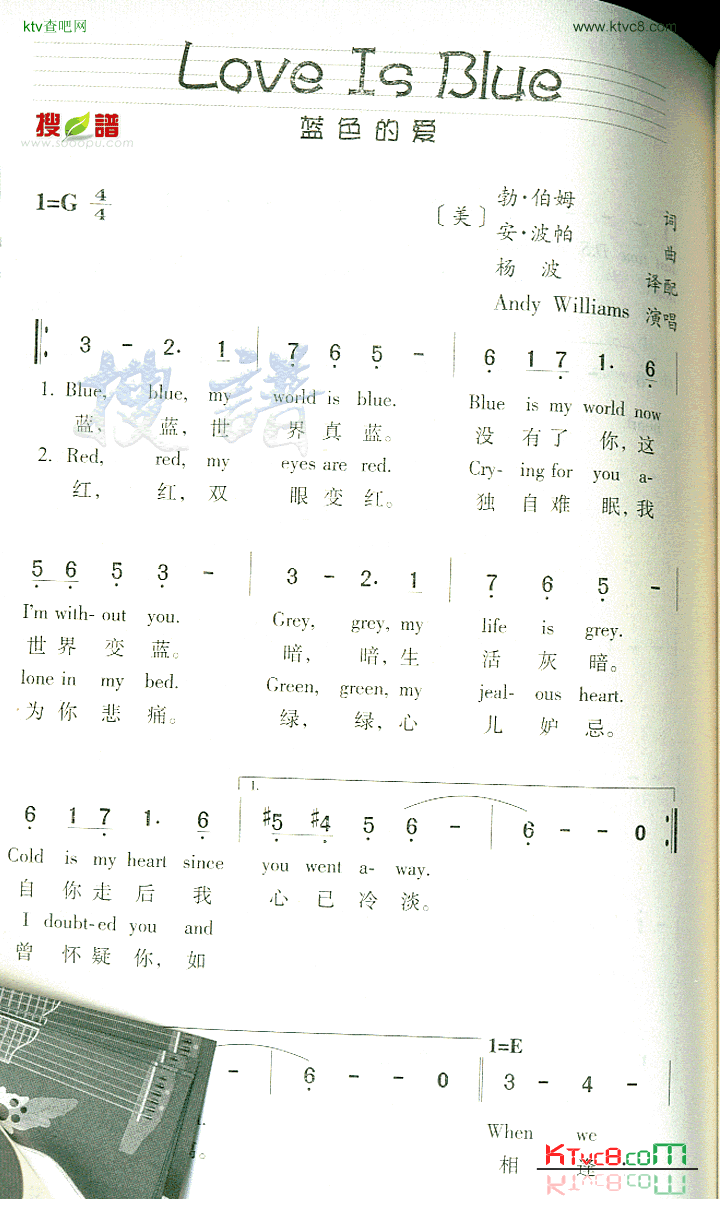 ktv查吧网 www.ktvc8.com
Love Is Blue
搜譜
www.sooopu.com
蓝色的爱
1=G 4/4
〔美〕勃·伯姆 词
安·波帕 曲
杨波 译配
Andy Williams 演唱
3 - 2. 1 | 7 6 5 - | 6 1 7 1. 6
1. Blue, blue, my world is blue. Blue is my world now
蓝, 蓝, 世 界 真 蓝。 没 有 了 你, 这
2. Red, red, my eyes are red. Cry- ing for you a-
红, 红, 双 眼 变 红。 独 自 难 眠, 我
5 6 5 3 - | 3 - 2. 1 | 7 6 5 -
I'm with- out you. Grey, grey, my life is grey.
世 界 变 蓝。 暗, 暗, 生 活 灰 暗。
lone in my bed. Green, green, my jeal- ous heart.
为 你 悲 痛。 绿, 绿, 心 儿 妒 忌。
1.
6 1 7 1. 6 | #5 #4 5 6 - | 6 - - 0
Cold is my heart since you went a- way.
自 你 走 后 我 心 已 冷 淡。
I doubt-ed you and
曾 怀 疑 你, 如
1=E
- | 6 - - 0 || 3 - 4 -
When we
相 逢
KTvc8.com